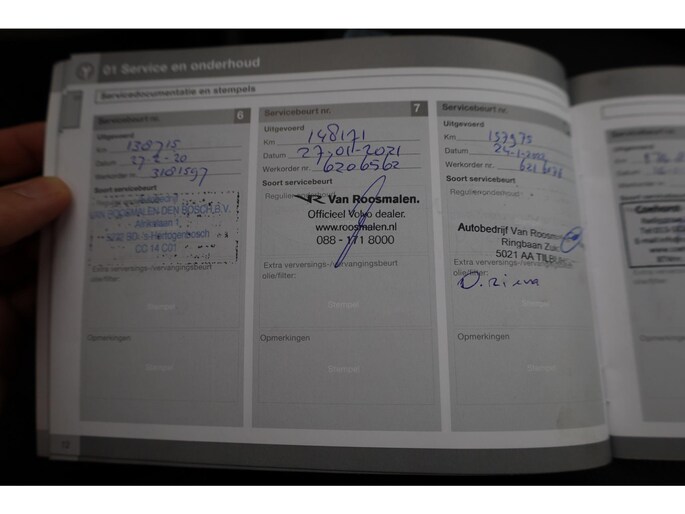 01 Service en onderhoud
Servicedocumentatie en stempels
Servicebeurt nr. 6
Uitgevoerd
Km 138715
Datum
Werkorder nr. 3101597
Soort servicebeurt
VAN ROOSMALEN DEN BOSCH B.V.
's-Hertogenbosch
CC 14 C01
Extra verversings-/vervangingsbeurt
olie/filter:
Stempel
Opmerkingen
Stempel
Servicebeurt nr. 7
Uitgevoerd
Km 148171
Datum 27-01-2021
Werkorder nr. 6206562
Soort servicebeurt
VR Van Roosmalen.
Officieel Volvo dealer.
www.roosmalen.nl
088 - 171 8000
Extra verversings-/vervangingsbeurt
olie/filter:
Stempel
Opmerkingen
Stempel
Servicebeurt nr.
Uitgevoerd
Km 157975
Datum
Werkorder nr.
Soort servicebeurt
Regulier onderhoud:
Autobedrijf Van Roosm
Ringbaan Zui
5021 AA TILBU
Extra verversings-/vervangingsbeurt
olie/filter:
Stempel
Opmerkingen
Stempel
12